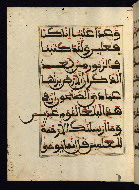 وعدا علينا إنا كنا
فعلين ولقد كتبنا
في الزبور من بعد
الذكر أن الأرض يرثها
عبادي الصلحون إن في
هذا لبلغا لقوم عبدين
وما أرسلنك إلا رحمة
للعلمين قل إنما يوحى